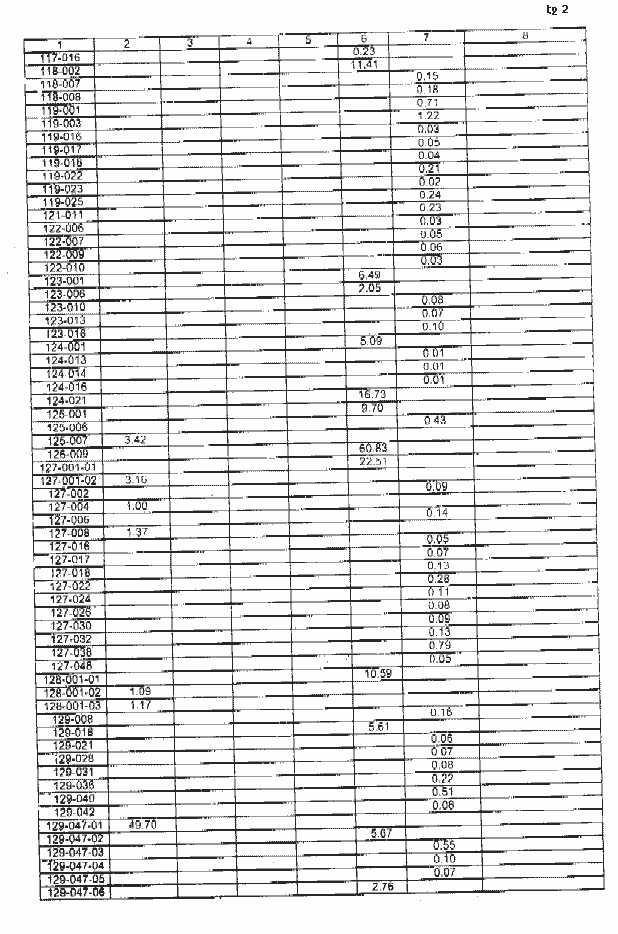 tp 2
1 2 3 4 5 6 7 8
117-016 0.23
118-002 11.41
118-007 0.15
118-008 0.18
119-001 0.71
119-003 1.22
119-016 0.03
119-017 0.05
119-018 0.04
119-022 0.21
119-023 0.02
119-025 0.24
121-011 0.23
122-006 0.03
122-007 0.05
122-009 0.06
122-010 0.03
123-001 6.49
123-006 2.05
123-010 0.08
123-013 0.07
123-016 0.10
124-001 5.09
124-013 0.01
124-014 0.01
124-016 0.01
124-021 16.73
125-001 9.70
125-006 0.43
125-007 3.42
126-009 60.83
127-001-01 22.51
127-001-02 3.16
127-002 0.09
127-004 1.00
127-006 0.14
127-008 1.37
127-016 0.05
127-017 0.07
127-018 0.13
127-022 0.28
127-024 0.11
127-026 0.08
127-030 0.09
127-032 0.13
127-038 0.79
127-048 0.05
128-001-01 10.59
128-001-02 1.09
128-001-03 1.17
129-008 0.16
129-018 5.61
129-021 0.06
129-028 0.07
129-031 0.08
129-036 0.22
129-040 0.51
129-042 0.06
129-047-01 49.70
129-047-02 5.67
129-047-03 0.55
129-047-04 0.10
129-047-05 0.07
129-047-06 2.76